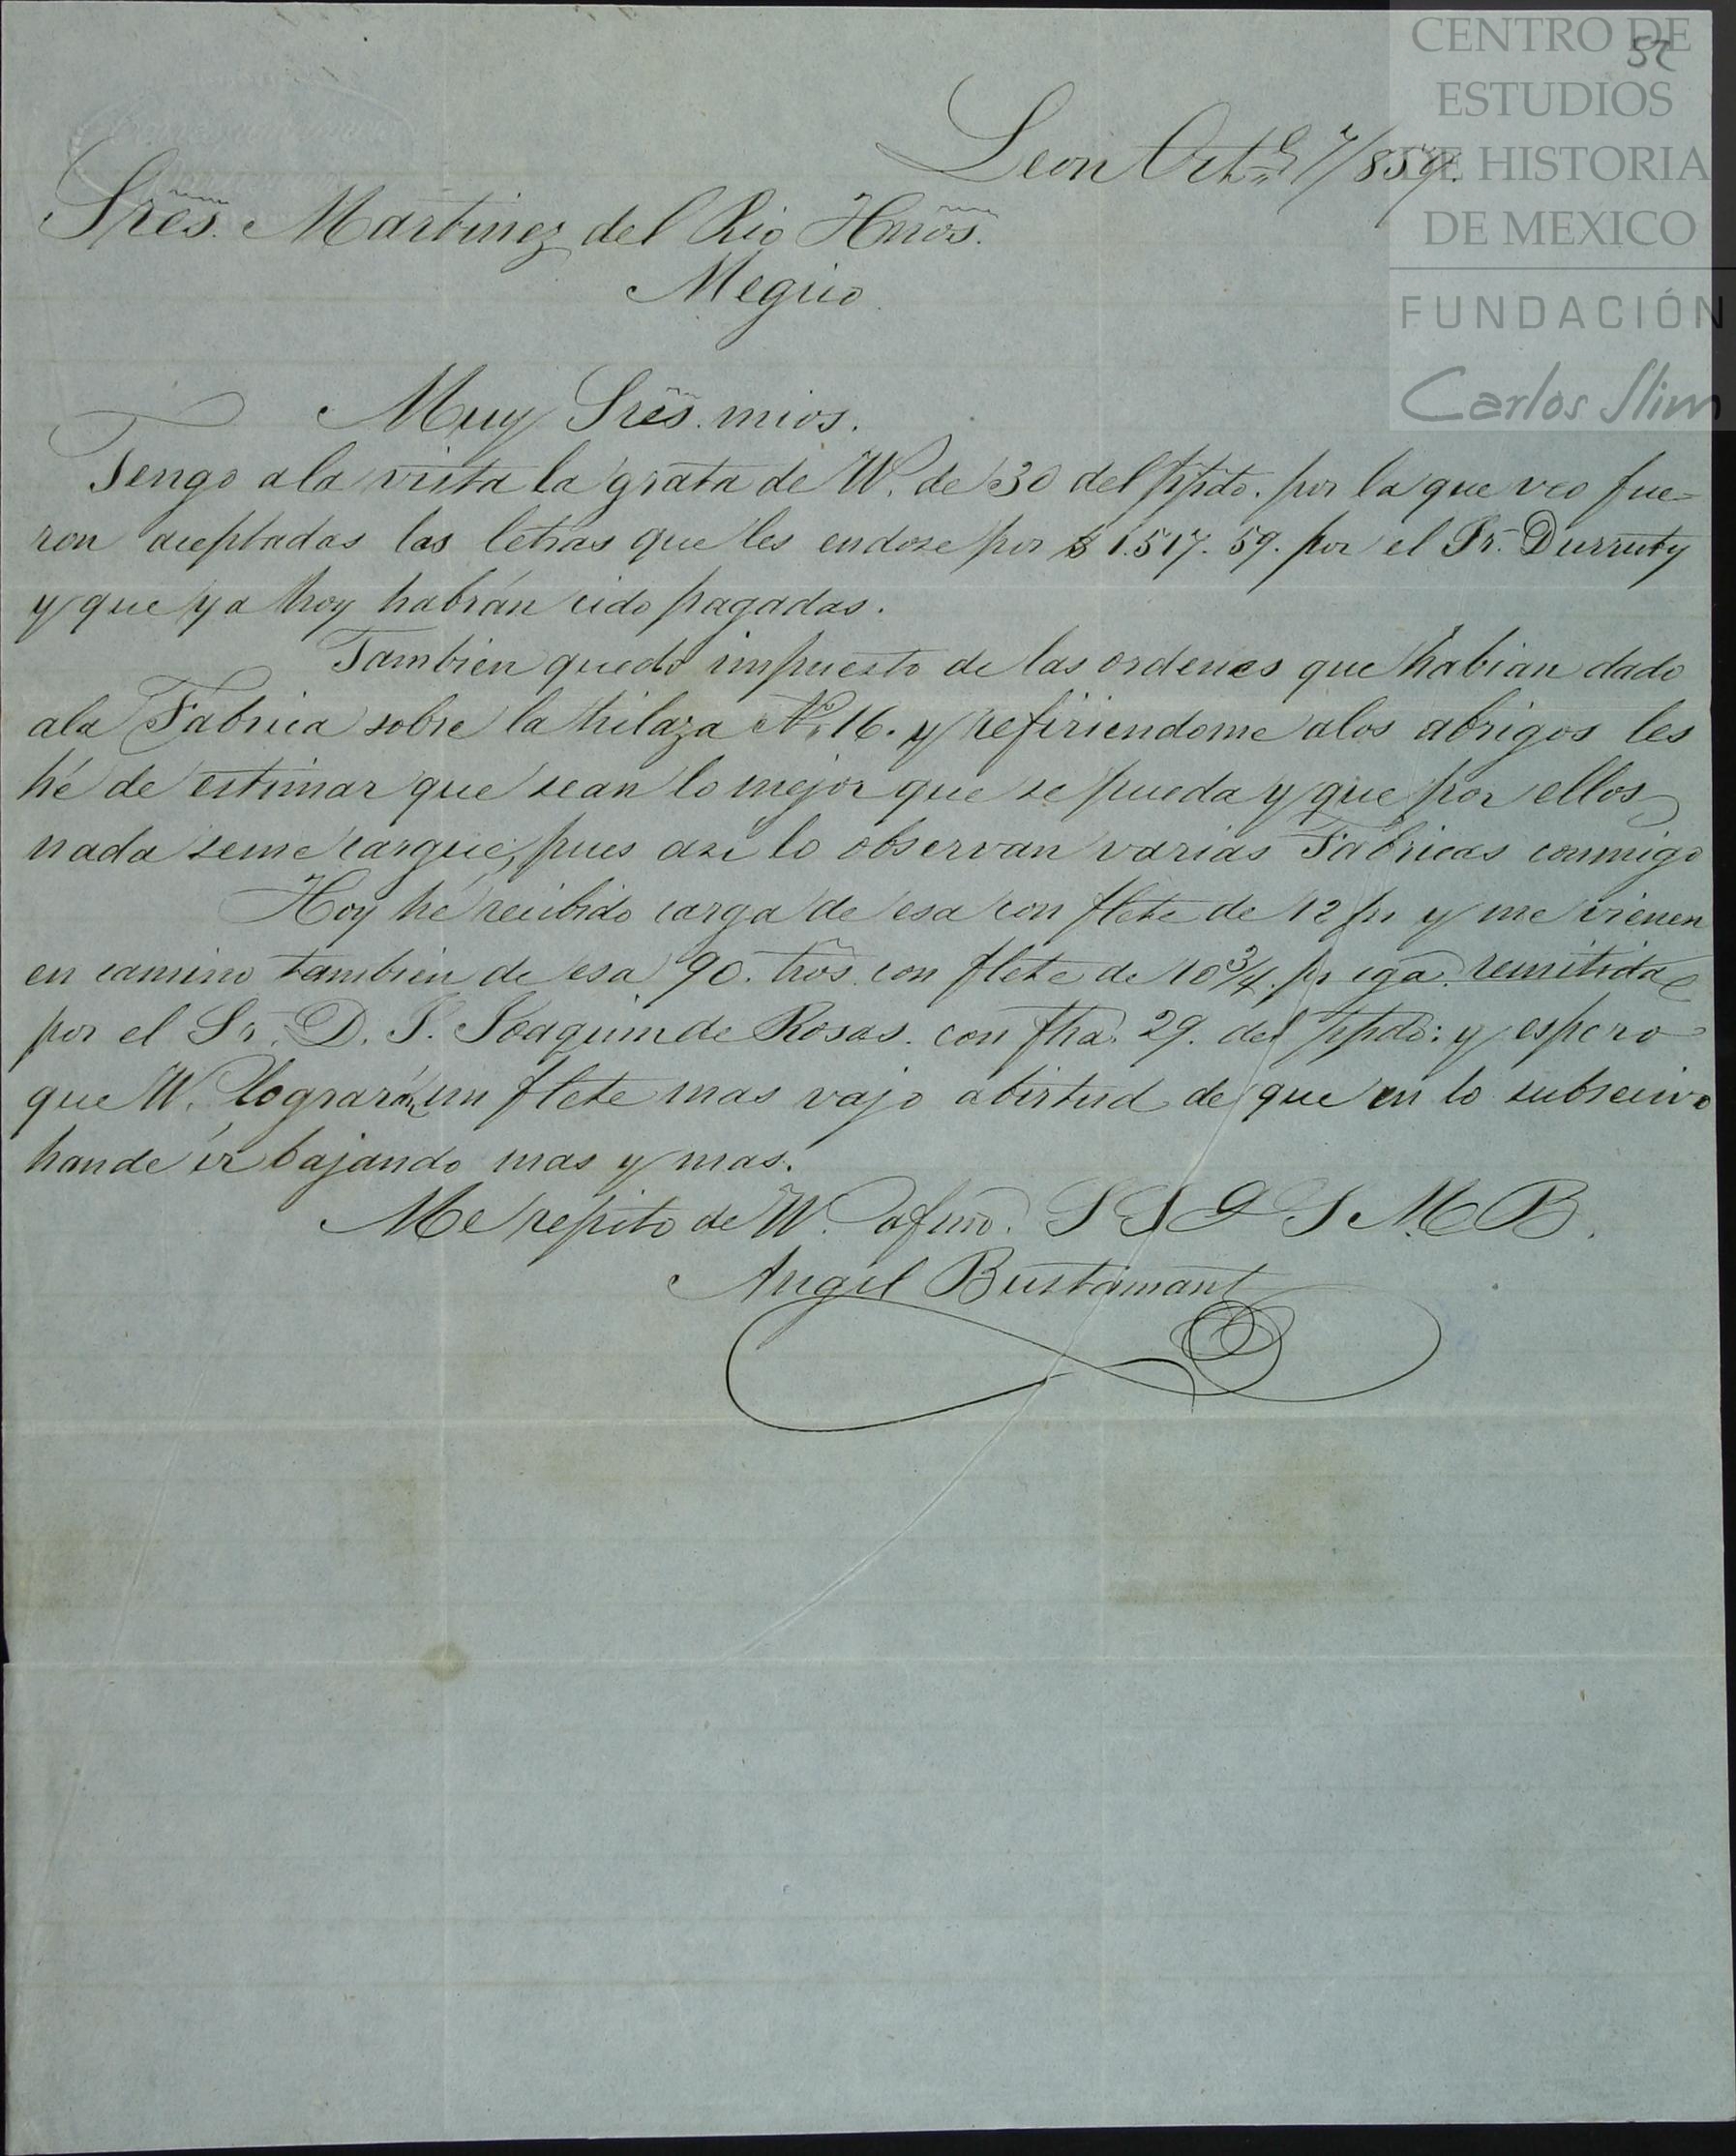 CENTRO DE
ESTUDIOS
DE HISTORIA
DE MEXICO
FUNDACIÓN
Carlos Slim
52
Leon Oct.e 7/859.
Sres. Martinez del Rio Hmos.
Megico
Muy Sres. mios.
Tengo ala vista la grata de W. de 30 del ppdo. por la que veo fue=
ron aceptadas las letras que les endose por $ 1.517. 59. por el Sr. Durruty
y que ya hoy habrán cido pagadas.
Tambien quedo impuesto de las ordenes que habian dado
ala Fabrica sobre la hilaza No. 16. y refiriendome alos abrigos les
hé de estimar que sean lo mejor que se pueda y que por ellos
nada seme cargue, pues asi lo observan varias Fabricas conmigo
Hoy hé recibido carga de esa con flete de 12 ps y me vienen
en camino tambien de esa 90. tros. con flete de 10 3/4. ps cga. remitida
por el Sr. D. J. Joaquin de Rosas. con fha. 29. del ppdo: y espero
que W. lograrán un flete mas vajo abirtud de que en lo subsecivo
hande ir bajando mas y mas.
Me repito de W. afmo. S S Q S M. B.
Angel Bustamant